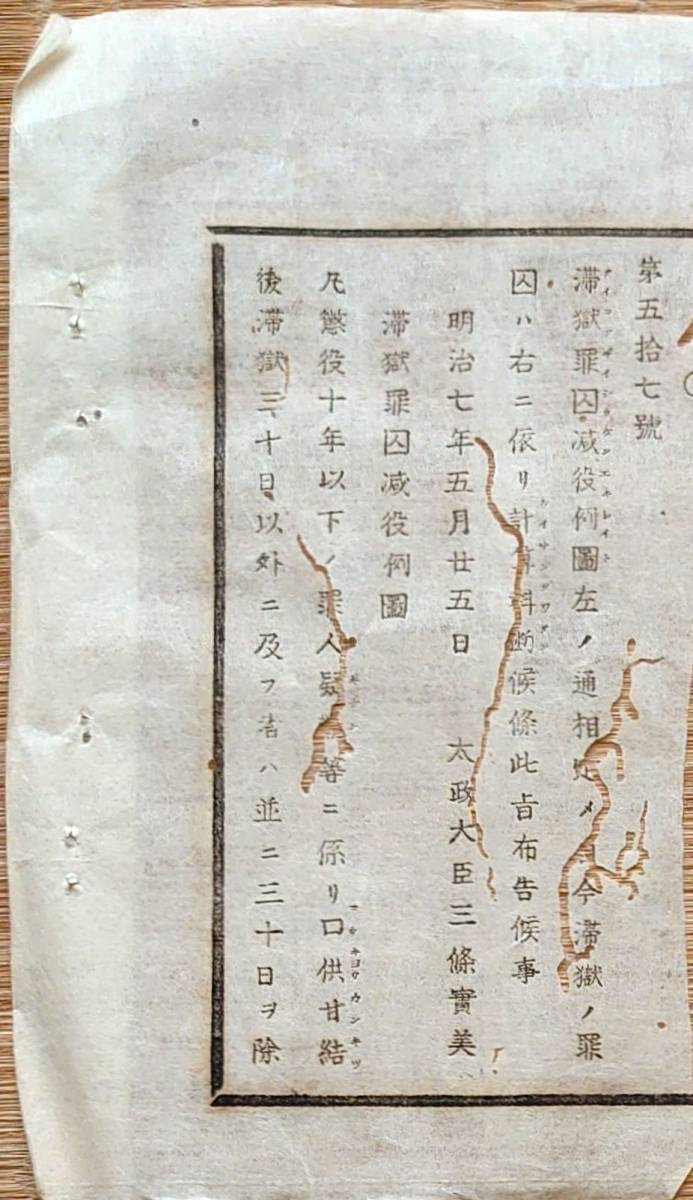 第五拾七號
滯獄罪囚减役例圖左ノ通相メ今滯獄ノ罪
囚ハ右ニ依リ計算科斷候條此旨布告候事
明治七年五月廿五日　太政大臣三條實美
滯獄罪囚减役例圖
凡懲役十年以下ノ罪人疑等ニ係リ口供甘結
後滯獄三十日以外ニ及フ者ハ並ニ三十日ヲ除